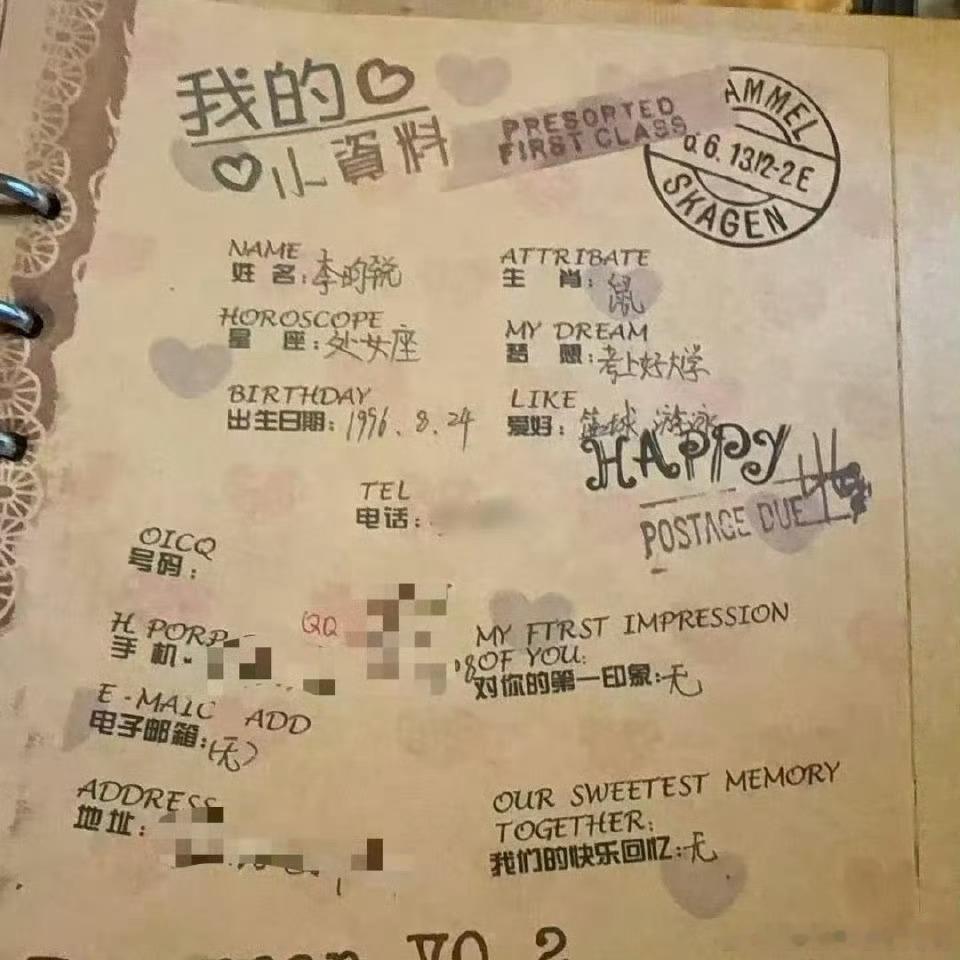 我的
小資料
PRESORTED
FIRST CLASS
AMMEL
6.13.12-2E
SKAGEN
NAME
姓 名:李昀锐
ATTRIBATE
生 肖:鼠
HOROSCOPE
星 座:处女座
MY DREAM
梦 想:考上好大学
BIRTHDAY
出生日期:1996.8.24
LIKE
爱好:篮球 游泳
HAPPY
POSTAGE DUE
TEL
电话:
OICQ
号码:
QQ
H PORP
手 机
E-MA1C ADD
电子邮箱:(无)
MY FTRST IMPRESSION
OF YOU:
对你的第一印象:无
ADDRESS
地址:
OUR SWEETEST MEMORY
TOGETHER:
我们的快乐回忆:无
VO.2